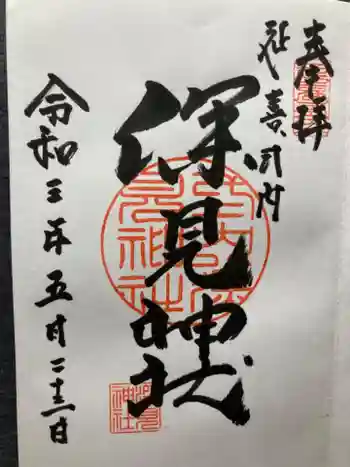 奉拝
延喜式内
保見神社
令和三年五月二十二日